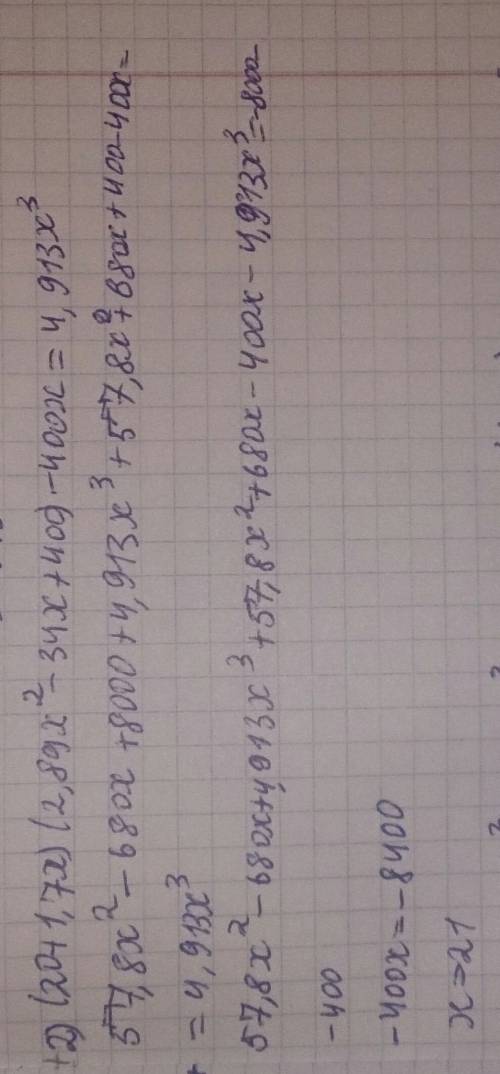 +2) (20+1,7x)(2,89x² - 34x + 400 - 400x = 4,913x³
57,8x² - 680x + 8000 + 4,913x³ + 57,8x² + 680x + 400 - 400x =
= 4,913x³
57,8x² - 680x + 4,913x³ + 57,8x² + 680x - 400x - 4,913x³ = -8000
-400
-400x = -8400
x = 21